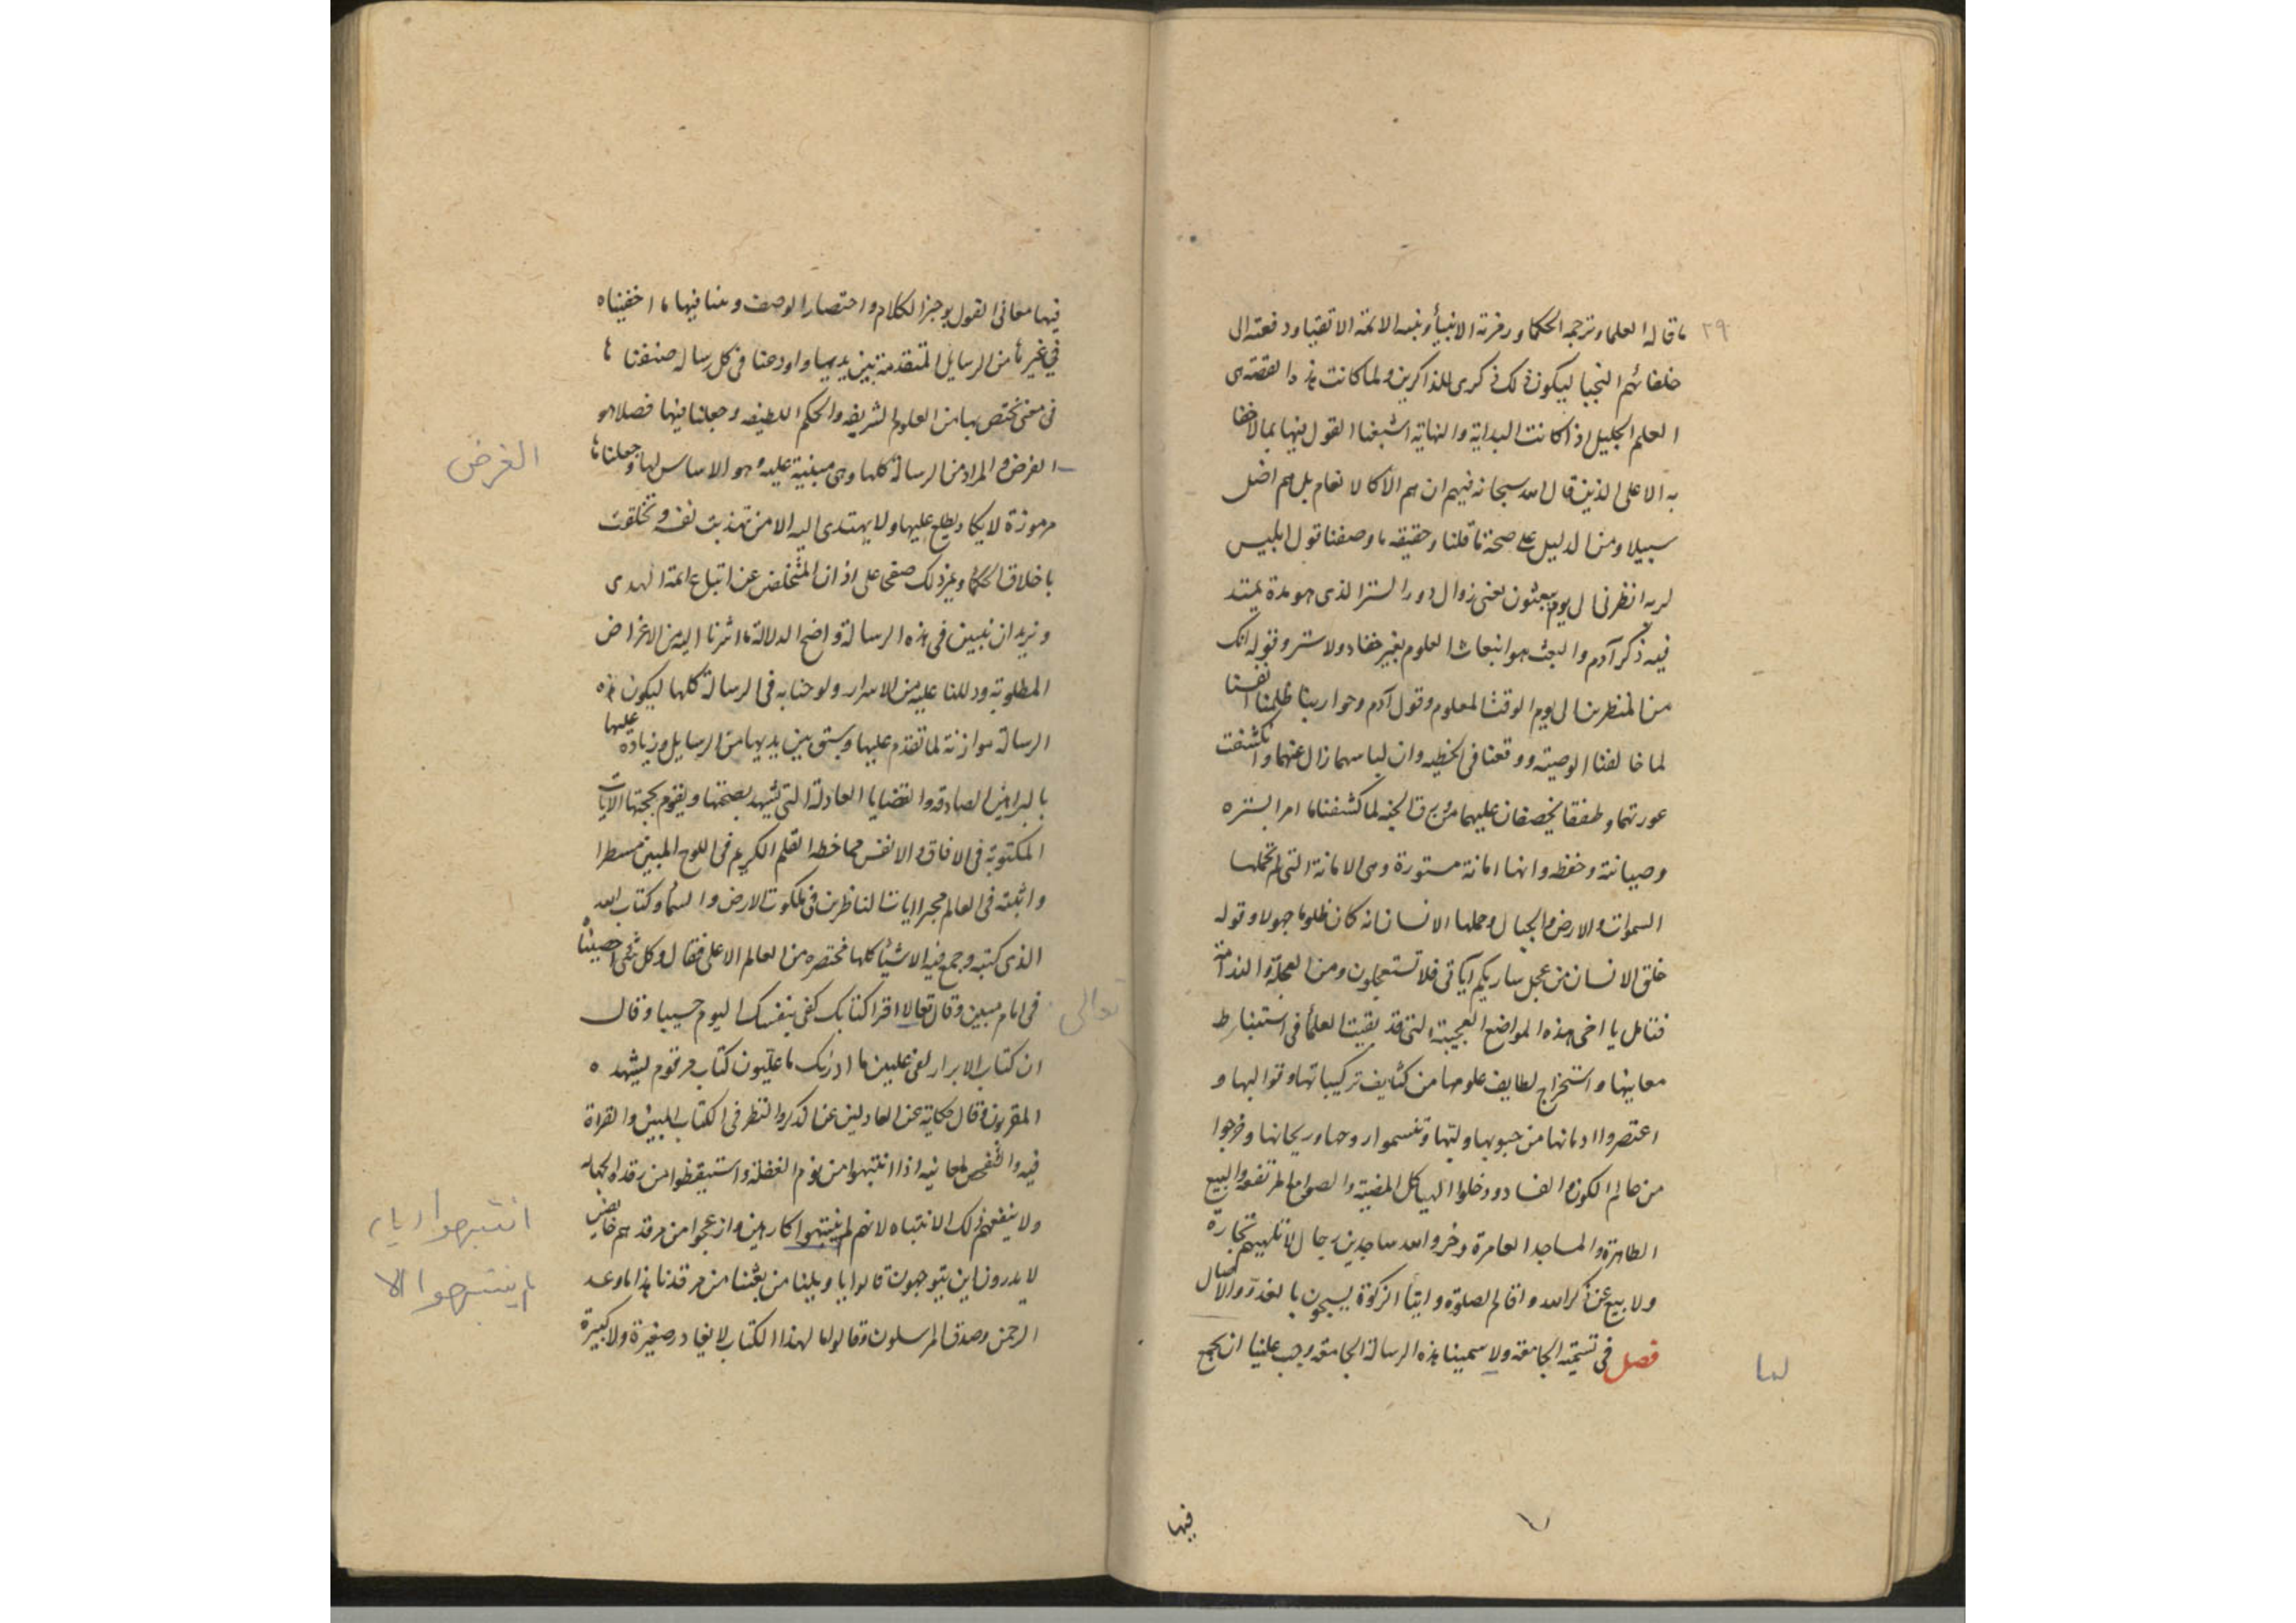 ٢٩
ما قاله العلما وترجمه الحكما ورمزته الانبيأ وبنيه الائمة الاتقيا ودفعته الى
خلفائهم النجبا ليكون ذلك ذكرى للذاكرين ولما كانت هذه القصة هى
العلم الجليل اذ كانت البداية والنهاية اشبعنا القول فيها بما لا خفا
به الا على الذين قال الله سبحانه فيهم ان هم الا كالانعام بل هم اضل
سبيلا ومن الدليل على صحة ما قلنا وحقيقه ما وصفنا قول ابليس
لربه انظرنى ال يوم يبعثون يعنى زوال دور الستر الذى هو مدة يمتد
فيه ذكر آدم والبعث هو انبعاث العلوم بغير خفاء ولا ستر وقوله انك
من المنظرين ال يوم الوقت المعلوم وقول آدم وحوا ربنا ظلمنا انفسنا
لما خالفنا الوصيته ووقعنا فى الخطيه وان لباسهما زال عنهما وانكشفت
عورتهما وطفقا يخصفان عليهما من ورق الجنه لما كشفنا ما امر ابستره
وصيانته وحفظه وانها امانة مستورة وهى الامانة التى لم تحملها
السموات والارض والجبال وحملها الانسان انه كان ظلوما جهولا وقوله
خلق الانسان من عجل ساريكم آياتى فلا تستعجلون ومن العجلة الندامة
فتامل يا اخى هذه المواضع العجيبة التى قد بقيت العلمأ فى استنباط
معانيها واستخراج لطايف علومها من كثايف تركيباتها وتواليها و
اعتصروا ادهانها من حبوبها ولبها وتنسموا روحها وريحانها وخرجوا
من عالم الكون والفساد ودخلوا الهياكل المضيئة والصوامع المرتفعة والبيع
الطاهرة والمساجد العامرة وخروا لله ساجدين رجال لا تلهيهم تجارة
ولا بيع عن ذكر الله واقام الصلوة وايتأ الزكوة يسبحون بالغدو والآصال
فصل فى تتمة الجامعة ولا سمينا هذه الرسالة الجامعة وجب علينا ان نجمع
لما
فيها
فيها معانى القول بوجز الكلام واختصار الوصف وبينا فيها ما اخفيناه
في غيرها من الرسايل المتقدمة بين يديها واودعنا فى كل رسالة صنفناها
فى معنى تختص بها من العلوم الشريفه والحكم اللطيفه وجعلنا فيها فصلا هو
الغرض والمراد من الرسالة كلها وهى مبنية عليه وهو الاساس لها وجعلناها
الغرض
مرموزة لا يكاد يطلع عليها ولا يهتدى اليه الا من تهذبت نفسه وتخلقت
باخلاق الحكمأ وغير ذلك صفحا على اذان المتخلفين عن اتباع ائمة الهدى
ونريد ان نبين فى هذه الرسالة واضح الدلالة ما اشرنا اليه من الاغراض
المطلوبة ودللنا عليه من الاسرار ولوحنا به فى الرسالة كلها ليكون هذه
الرسالة موازنة لما تقدم عليها وسبق بين يديها من الرسايل وزيادة عليها
بالبراهين الصادقه والقضايا العادلة التى تشهد بصحتها ويقوم بحجتها الآيات
المكتوبة فى الافاق والانفس مما خطه القلم الكريم فى اللوح المبين مسطرا
واثبته فى العالم مجرا ايات الناظرين فى ملكوت الارض والسمأ وكتاب الله
الذى كتبه وجمع فيه الاشيأ كلها مختصره من العالم الاعلى فقال وكل شئ احصيناه
فى امام مبين وقال تعالا اقرا كتابك كفى بنفسك اليوم حسيبا وقال
تعالى
ان كتاب الابرار لفى عليين ما ادريك ما عليون كتاب مرقوم يشهده
المقربون وقال حكاية عن العادلين عنا لذكر والنظر فى الكتاب المبين والقراة
فيه والتفحص لمعانيه اذا انتبهوا من نوم الغفلة واستيقظوا من رقدة الجهاله
ولا ينفعهم ذلك الانتباه لانهم لم ينتبهوا كارهين وازعجوا من مرقدهم خايفين
انتبهوا
لم ينتبهوا الا
لا يدرون اين يتوجهون قالوا يا ويلنا من بعثنا من مرقدنا هذا ما وعد
الرحمن وصدق المرسلون وقالوا ما لهذا الكتاب لا يغادر صغيرة ولا كبيرة